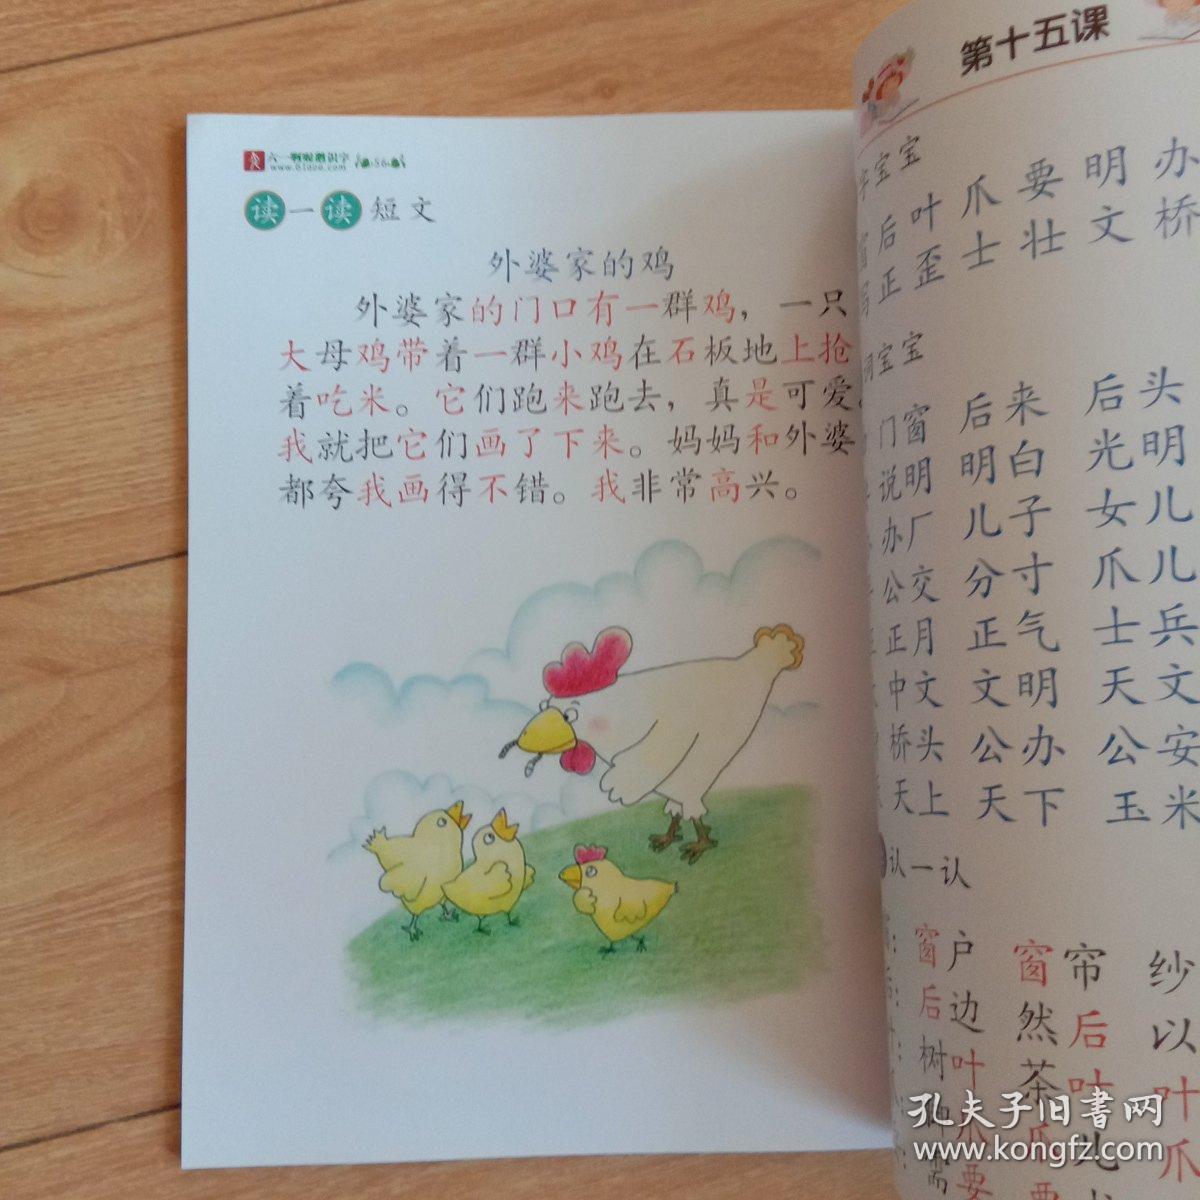 六一
识字
56
读一读 短文
外婆家的鸡
外婆家的门口有一群鸡，一只
大母鸡带着一群小鸡在石板地上抢
着吃米。它们跑来跑去，真是可爱。
我就把它们画了下来。妈妈和外婆
都夸我画得不错。我非常高兴。
第十五课
字宝宝
窗后叶爪要明办
正歪士壮文桥
词宝宝
门窗 后来 后头
说明 明白 光明
办厂 儿子 女儿
公交 分寸 爪儿
正月 正气 士兵
中文 文明 天文
桥头 公办 公安
天上 天下 玉米
认一认
窗户 窗帘 纱
后边 然后 以
树叶 茶叶 叶
爪 爪儿 爪
需要 要
孔夫子旧书网
www.kongfz.com